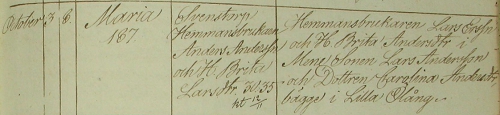 October 3. 8. Maria
187.
Svenstorp
Hemmansbrukaren
Anders Andersson
och H. Brita
Larsdtr. 30.35
Hemmansbrukaren Lars
och H. Brita Andersdtr i
Sonen Lars Andersson
och Dottren Carolina Andersdtr
bägge i Lilla